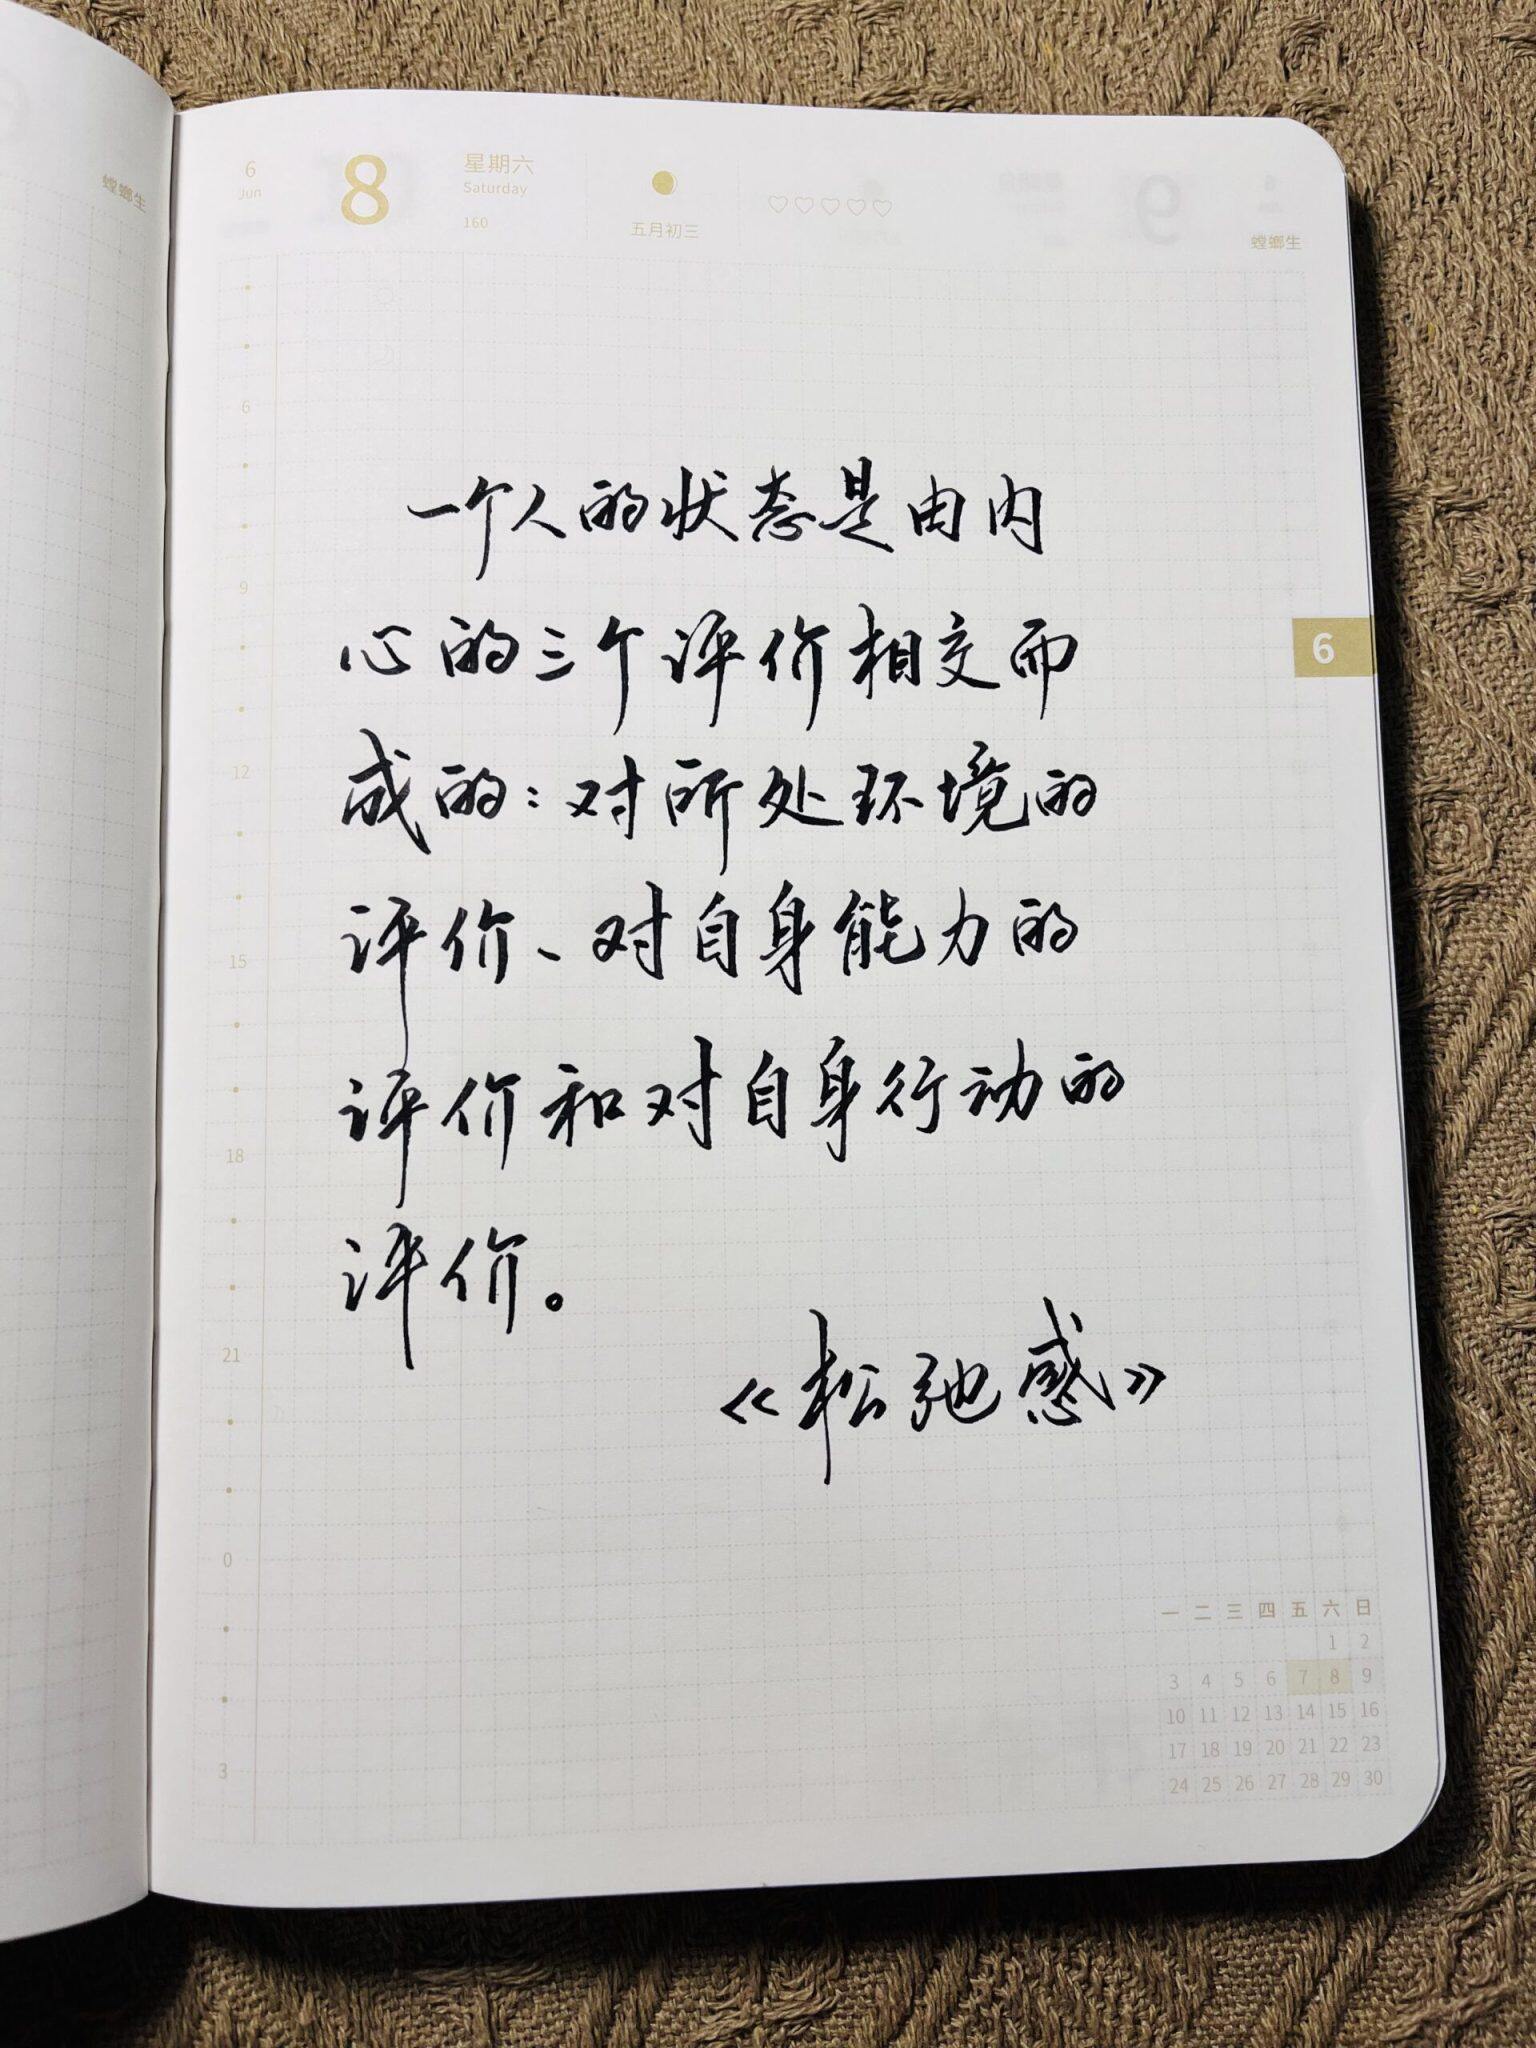 螳螂生
6
Jun
8
星期六
Saturday
160
五月初三
螳螂生
6
9
12
15
18
21
0
3
一个人的状态是由内
心的三个评价相交而
成的：对所处环境的
评价、对自身能力的
评价和对自身行动的
评价。
《松弛感》
6
一 二 三 四 五 六 日
1 2
3 4 5 6 7 8 9
10 11 12 13 14 15 16
17 18 19 20 21 22 23
24 25 26 27 28 29 30